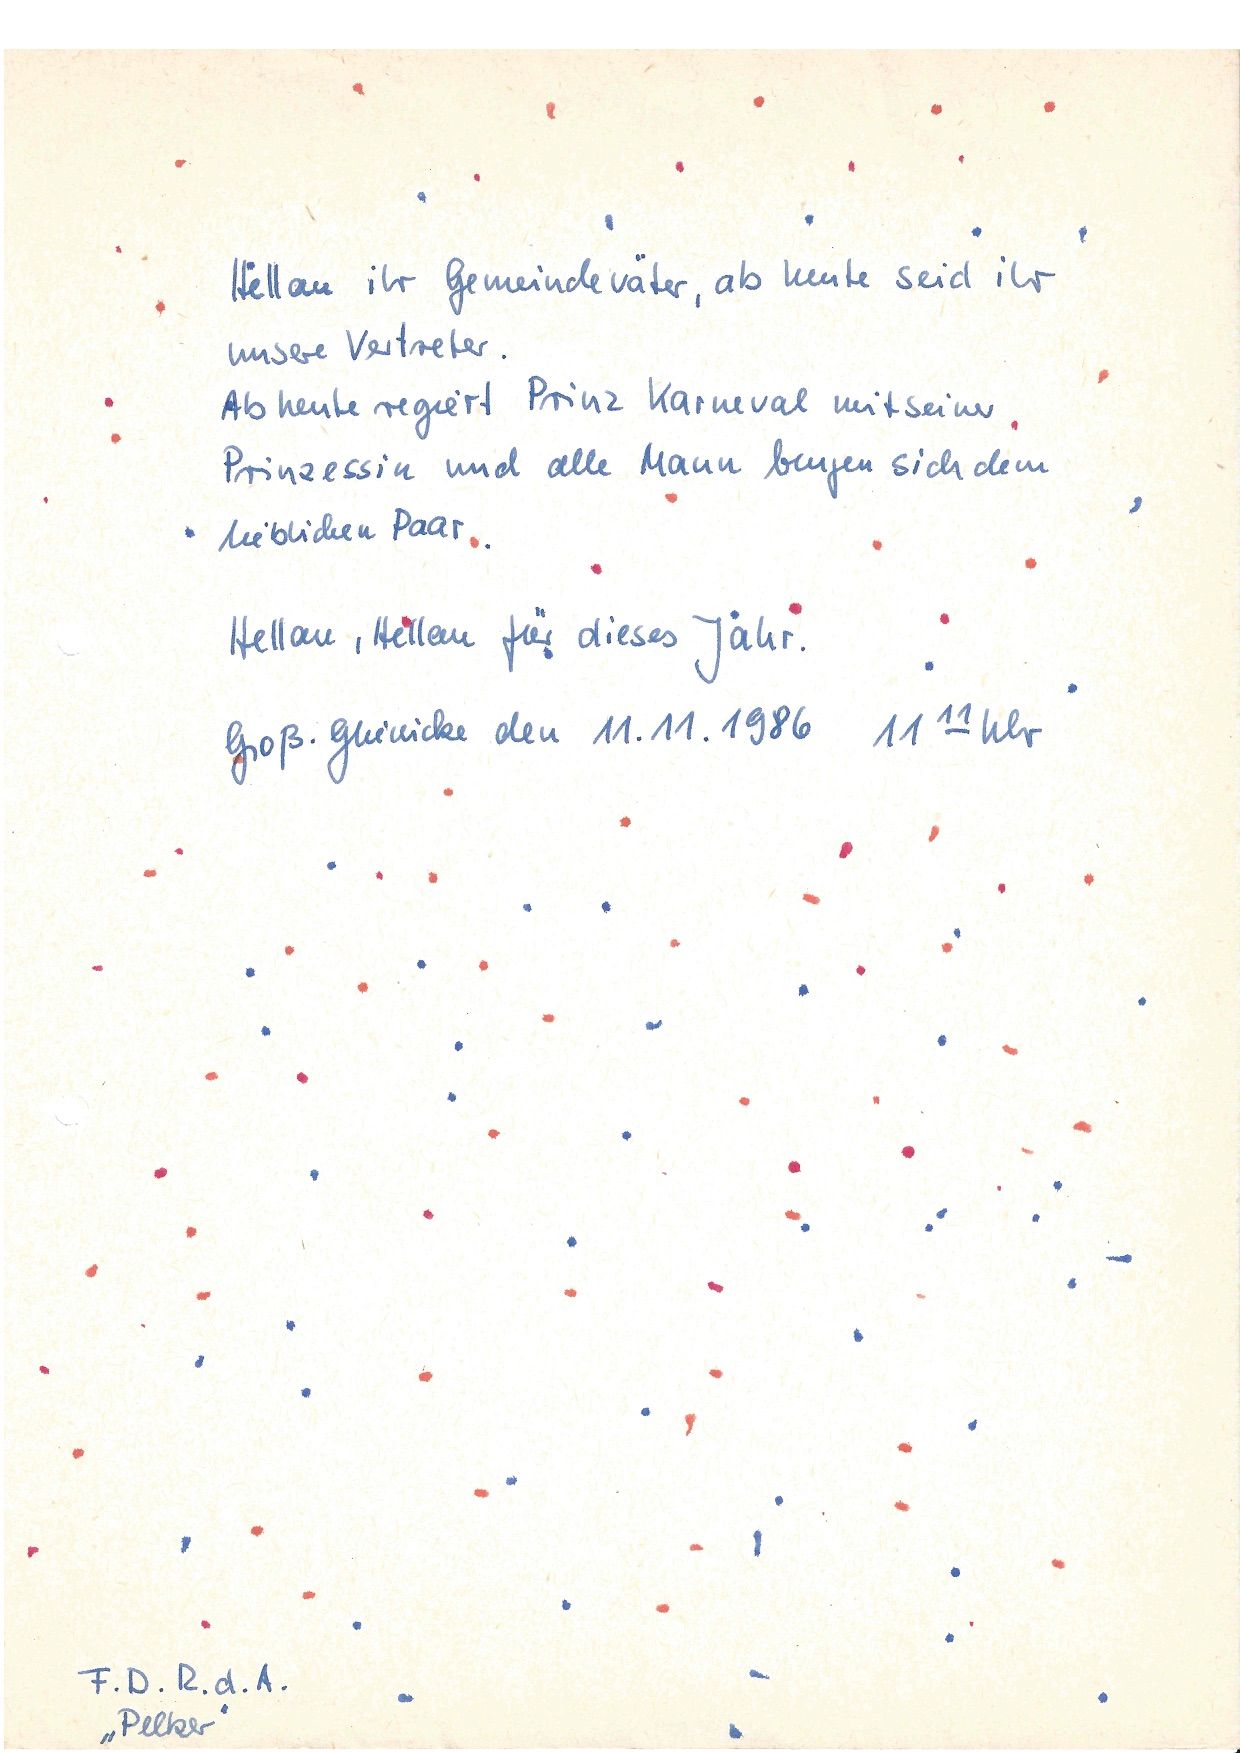 Hellau ihr Gemeindeväter, ab heute seid ihr
unsere Vertreter.
Ab heute regiert Prinz Karneval mit seiner
Prinzessin und alle Mann beugen sich dem
lieblichen Paar.
Hellau, Hellau für dieses Jahr.
Groß. Glienicke den 11.11.1986 11 11 Uhr
F.D.R.d.A.
„Pelker"